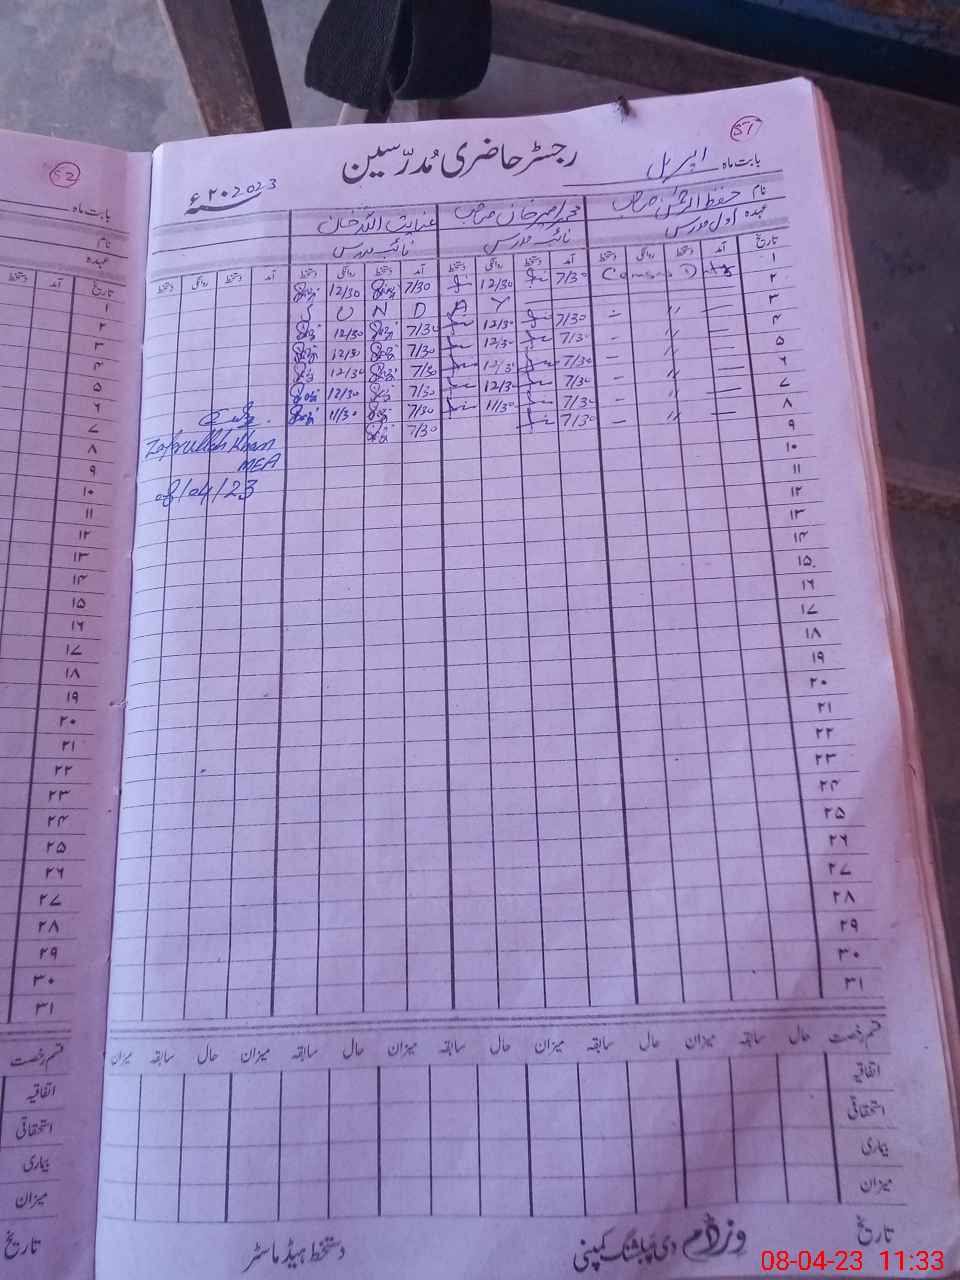 52
57
رجسٹر حاضری مُدرّسین
بابت ماہ اپریل
۲۰2023ء
نام حفیظ الرحمٰن صاحب محمد امیر خان صاحب عنایت اللہ خان
عہدہ اول مدرس نائب مدرس نائب مدرس
تاریخ آمد دستخط روانگی دستخط آمد دستخط روانگی دستخط آمد دستخط روانگی دستخط آمد دستخط روانگی دستخط
۱ 7/30 12/30 7/30 12/30
۲ S U N D A Y
۳ 〃 7/30 12/30 7/30 12/30
۴ 〃 7/30 12/30 7/30 12/30
۵ 〃 7/30 12/30 7/30 12/30
۶ 〃 7/30 12/30 7/30 12/30
۷ 〃 7/30 11/30 7/30 11/30
۸ 〃 7/30 7/30
Zafrullah Khan
MEA
08/04/23
۹
۱۰
۱۱
۱۲
۱۳
۱۴
۱۵
۱۶
۱۷
۱۸
۱۹
۲۰
۲۱
۲۲
۲۳
۲۴
۲۵
۲۶
۲۷
۲۸
۲۹
۳۰
۳۱
قسم رخصت حال سابقہ میزان حال سابقہ میزان حال سابقہ میزان حال سابقہ میزان حال سابقہ میزان
اتفاقیہ
استحقاقی
بیماری
میزان
تاریخ وزڈم دی پبلشنگ کمپنی دستخط ہیڈ ماسٹر
بابت ماہ
نام
عہدہ
تاریخ آمد دستخط
۱
۲
۳
۴
۵
۶
۷
۸
۹
۱۰
۱۱
۱۲
۱۳
۱۴
۱۵
۱۶
۱۷
۱۸
۱۹
۲۰
۲۱
۲۲
۲۳
۲۴
۲۵
۲۶
۲۷
۲۸
۲۹
۳۰
۳۱
قسم رخصت
اتفاقیہ
استحقاقی
بیماری
میزان
تاریخ
08-04-23 11:33